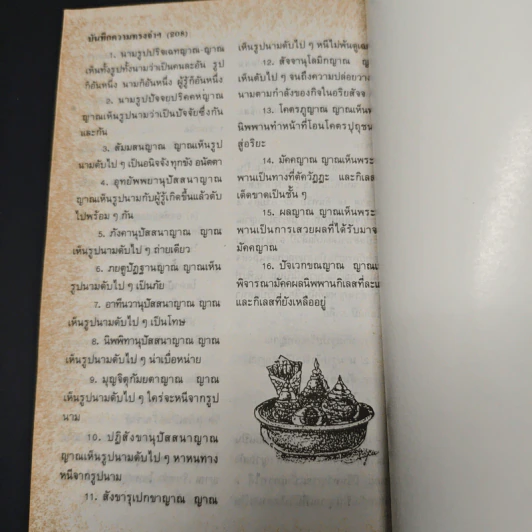 บันทึกความทรงจำฯ (๒๓๑)
1. นามรูปปริจเฉทญาณ ญาณ
เห็นทั้งรูปทั้งนามว่าเป็นคนละอัน รูป
ก็อันหนึ่ง นามก็อันหนึ่ง ผู้รู้ก็อันหนึ่ง
2. นามรูปปัจจัยปริคคหญาณ
ญาณเห็นรูปนามว่าเป็นปัจจัยซึ่งกัน
และกัน
3. สัมมสนญาณ ญาณเห็นรูป
นามดับไป ๆ เป็นอนิจจัง ทุกขัง อนัตตา
4. อุทยัพพยานุปัสสนาญาณ
ญาณเห็นรูปนามกับผู้รู้เกิดขึ้นแล้วดับ
ไปพร้อม ๆ กัน
5. ภังคานุปัสสนาญาณ ญาณ
เห็นรูปนามดับไป ๆ ถ่ายเดียว
6. ภยตูปัฏฐานญาณ ญาณเห็น
รูปนามดับไป ๆ เป็นภัย
7. อาทีนวานุปัสสนาญาณ ญาณ
เห็นรูปนามดับไป ๆ เป็นโทษ
8. นิพพิทานุปัสสนาญาณ ญาณ
เห็นรูปนามดับไป ๆ น่าเบื่อหน่าย
9. มุญจิตุกัมยตาญาณ ญาณ
เห็นรูปนามดับไป ๆ ใคร่จะหนีจากรูป
นาม
10. ปฏิสังขานุปัสสนาญาณ
ญาณเห็นรูปนามดับไป ๆ หาหนทาง
หนีจากรูปนาม
11. สังขารุเปกขาญาณ ญาณ
เห็นรูปนามดับไป ๆ หนีไม่พ้นดูเฉย
12. สัจจานุโลมิกญาณ
เห็นดับไป ๆ จนถึงความปล่อยวาง
นามตามกำลังของกิจในอริยสัจ
13. โคตรภูญาณ ญาณเห็น
นิพพานทำหน้าที่โอนโคตรปุถุชน
สู่อริยะ
14. มัคคญาณ ญาณเห็นพระ
พานเป็นทางที่ตัดวัฏฏะ และกิเลส
เด็ดขาดเป็นชั้น ๆ
15. ผลญาณ ญาณเห็นพระ
พานเป็นการเสวยผลที่ได้รับมาจ
มัคคญาณ
16. ปัจเวกขณญาณ
พิจารณามัคคผลนิพพานกิเลสที่ละ
และกิเลสที่ยังเหลืออยู่